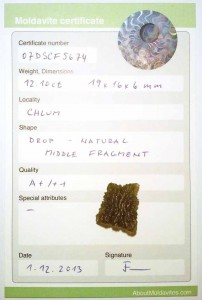 Moldavite certificate
Certificate number
07DSCF5674
Weight, Dimensions
12.10ct 19x16x6mm
Locality
CHLUM
Shape
DROP - NATURAL
MIDDLE FRAGMENT
Quality
A+/+1
Special attributes
-
Date
Signature
1.12.2013
AboutMoldavites.com